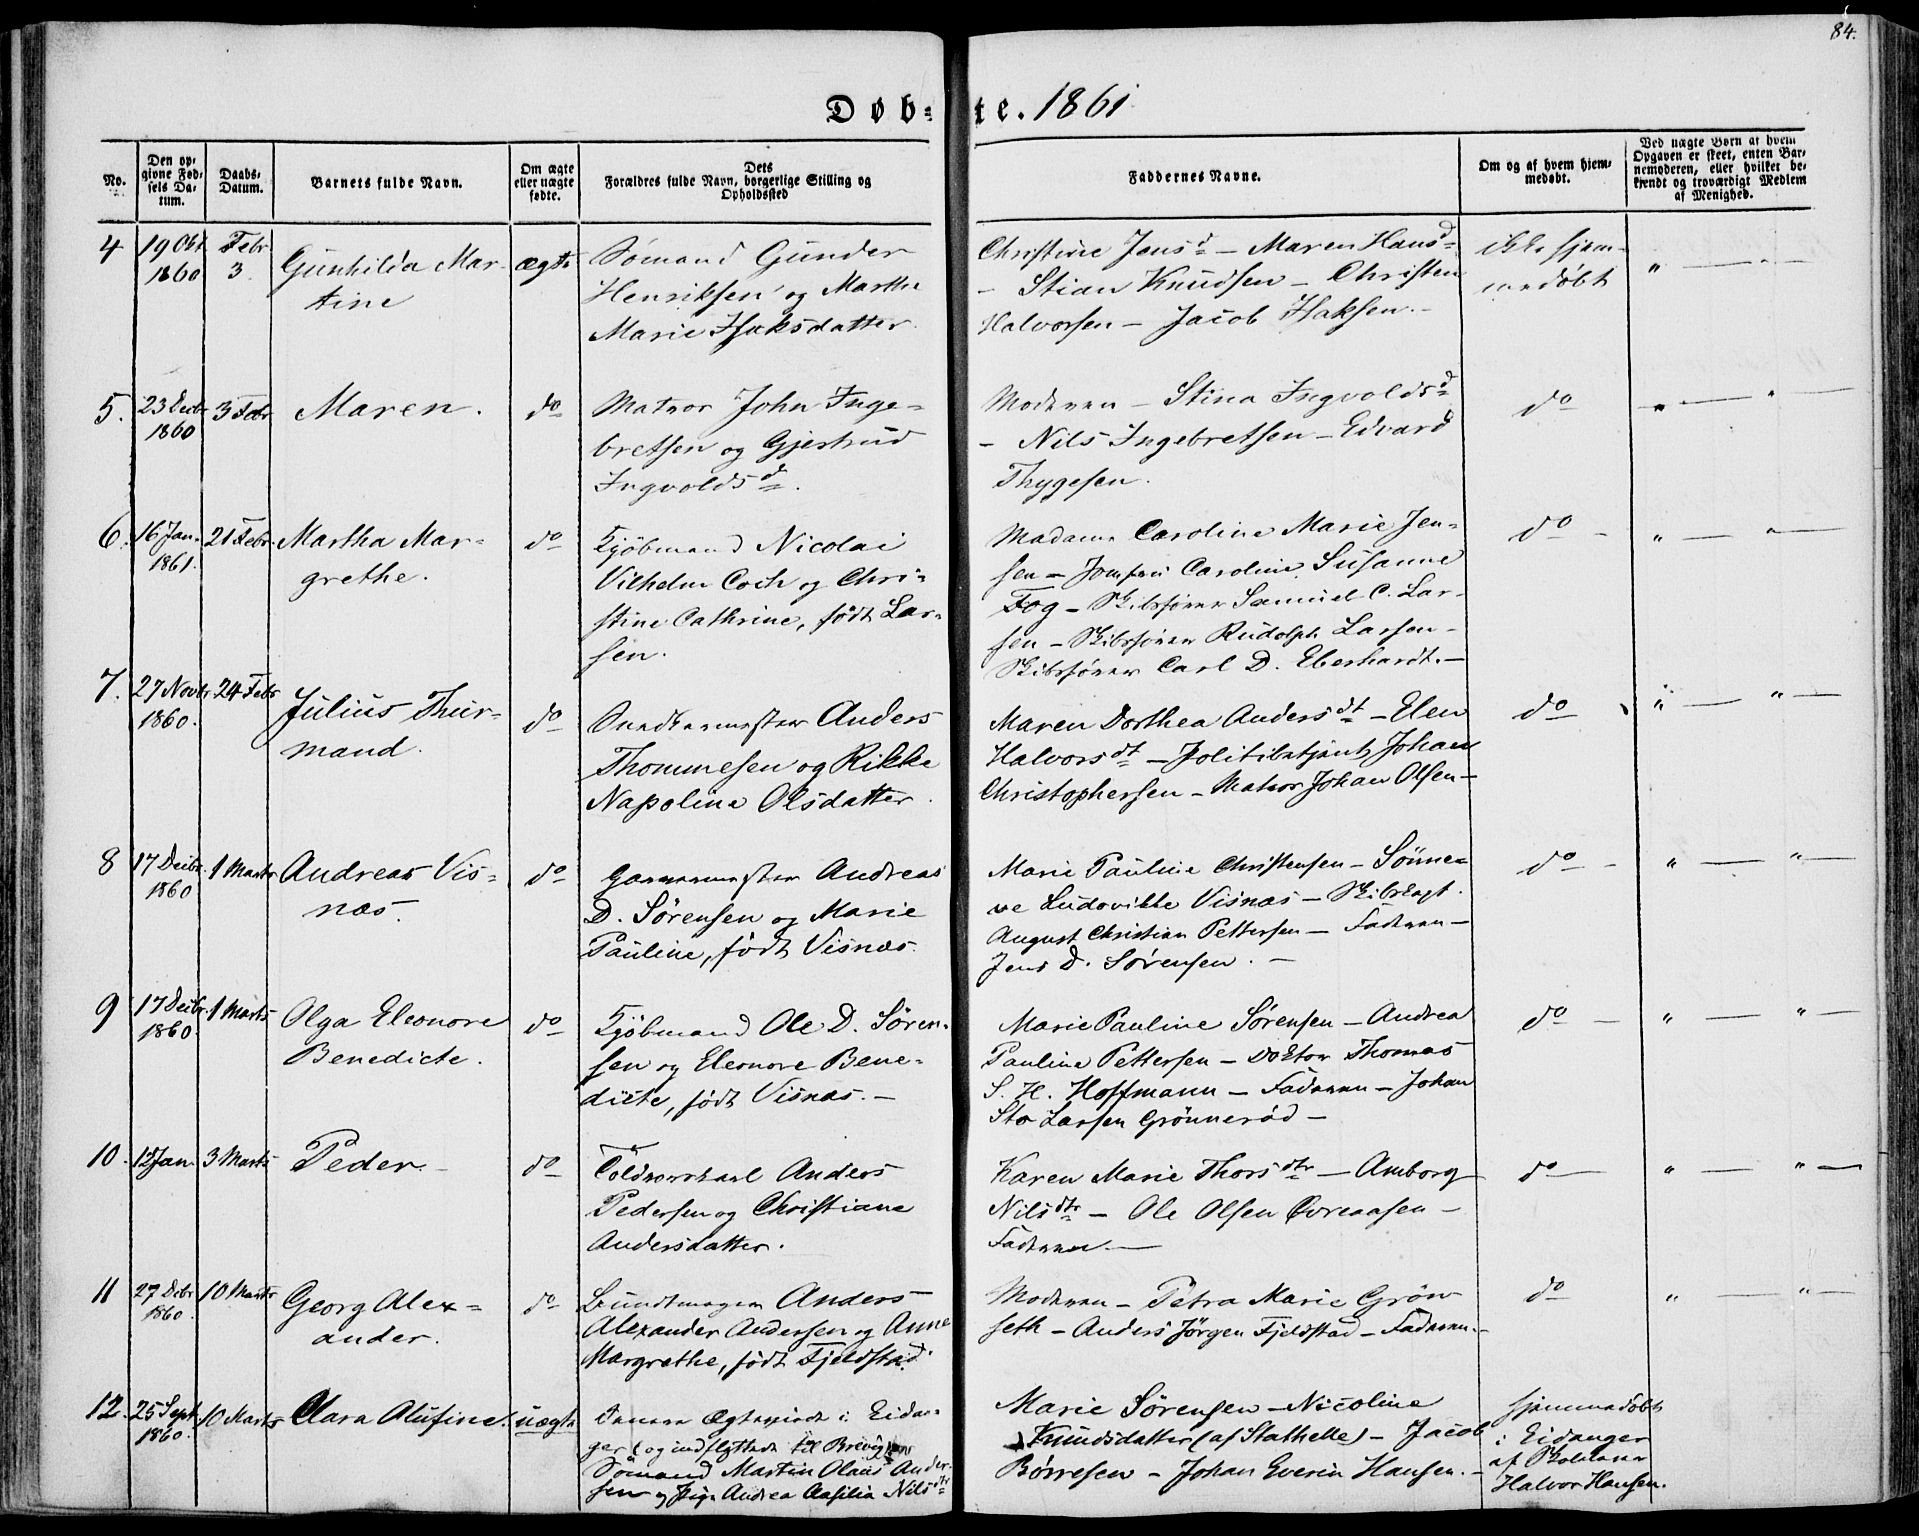 84.
Døb- te. 1861
No.
Den opgivne Fødsels Datum.
Daabs-Datum.
Barnets fulde Navn.
Om ægte eller uægte fødte.
Dets Forældres fulde Navn, borgerlige Stilling og Opholdssted
Faddernes Navne.
Om og af hvem hjemmedøbt.
Ved uægte Børn af hvem Opgaven er skeet, enten Barnemoderen, eller hvilket bekjendt og troværdigt Medlem af Menighed.
4 19 Okt 1860 Febr 3.
Gunhilda Mar-
tine
ægte
Sømand Gunder
Henriksen og Marthe
Marie Isaksdatter.
Christine Jensd - Maren Hansd
- Stian Knudsen - Christen
Halvorsen - Jacob Isaksen. -
ikke hjem-
medøbt
" — " —
5. 23 Decbr 1860 3 Febr
Maren.
do
Matros John Inge-
bretsen og Gjertrud
Ingvoldsd.
Moderen - Stina Ingvoldsd
- Nils Ingebretsen - Edvard
Thygesen.
do
" — " —
6. 16 Jan. 1861. 21 Febr
Martha Mar-
grethe.
do
Kjøbmand Nicolai
Vilhelm Coch og Chri-
stine Cathrine, født Lar-
sen.
Madame Caroline Marie Jen-
sen - Jomfru Caroline Susanne
Fog - Skibsfører Samuel C. Lar-
sen - Skibsfører Rudolph Larsen -
Skibsfører Carl D. Eberhardt. -
do -
" — " —
7. 27 Novbr 1860. 24 Febr
Julius Thur-
mand.
do
Anders
Thommesen og Rikke
Napoline Olsdatter.
Maren Dorthea Andersdt - Elen
Halvorsdt - Politibetjent Johan
Christophersen - Matros Johan Olsen -
do
" — " —
8 17 Decbr 1860 1 Marts
Andreas Vis-
næs.
do
Garvermester Andreas
D. Sørensen og Marie
Pauline, født Visnæs.
Marie Pauline Christensen - Sønne-
ve Ludovikke Visnæs - Skibskapt.
August Christian Pettersen - Faderen -
Jens D. Sørensen. -
do -
" — " —
9 17 Decbr 1860 1 Marts
Olga Eleonore
Benedicte.
do
Kjøbmand Ole D. Søren-
sen og Eleonore Bene-
dicte, født Visnæs. -
Marie Pauline Sørensen - Andrea
Pauline Pettersen - Doktor Thomas
S. H. Hoffmann - Faderen - Johan
Sto Larsen Grønnerød -
do -
" — " —
10. 12 Jan. 3 Marts
Peder. -
do
Toldroerskarl Anders
Pedersen og Christiane
Andersdatter.
Karen Marie Thorsdtr - Amborg
Nilsdtr - Ole Olsen -
Faderen. -
do -
" — " —
11 27 Dcbr 1860. 10 Marts
Georg Alex-
ander.
do
Bundtmager Anders
Alexander Andersen og Anne
Margrethe, født Fjeldstad.
Moderen - Petra Marie Grøn-
seth - Anders Jørgen Fjeldstad - Faderen. -
do
" — " —
12. 25 Sept 1860. 10 Marts
Clara Alufine.
uægte
senere Ægteviede i Eidan-
ger (og indflyttede til Brevig)
Sømand Martin Olaus Ander-
sen og Pige Andrea Nilsdtr
Marie Sørensen - Nicoline
Knudsdatter (af Stathelle) - Jacob
Børresen - Johan Everin Hansen. -
hjemmedøbt
i Eidanger
af Skolelærer
Halvor Hansen.